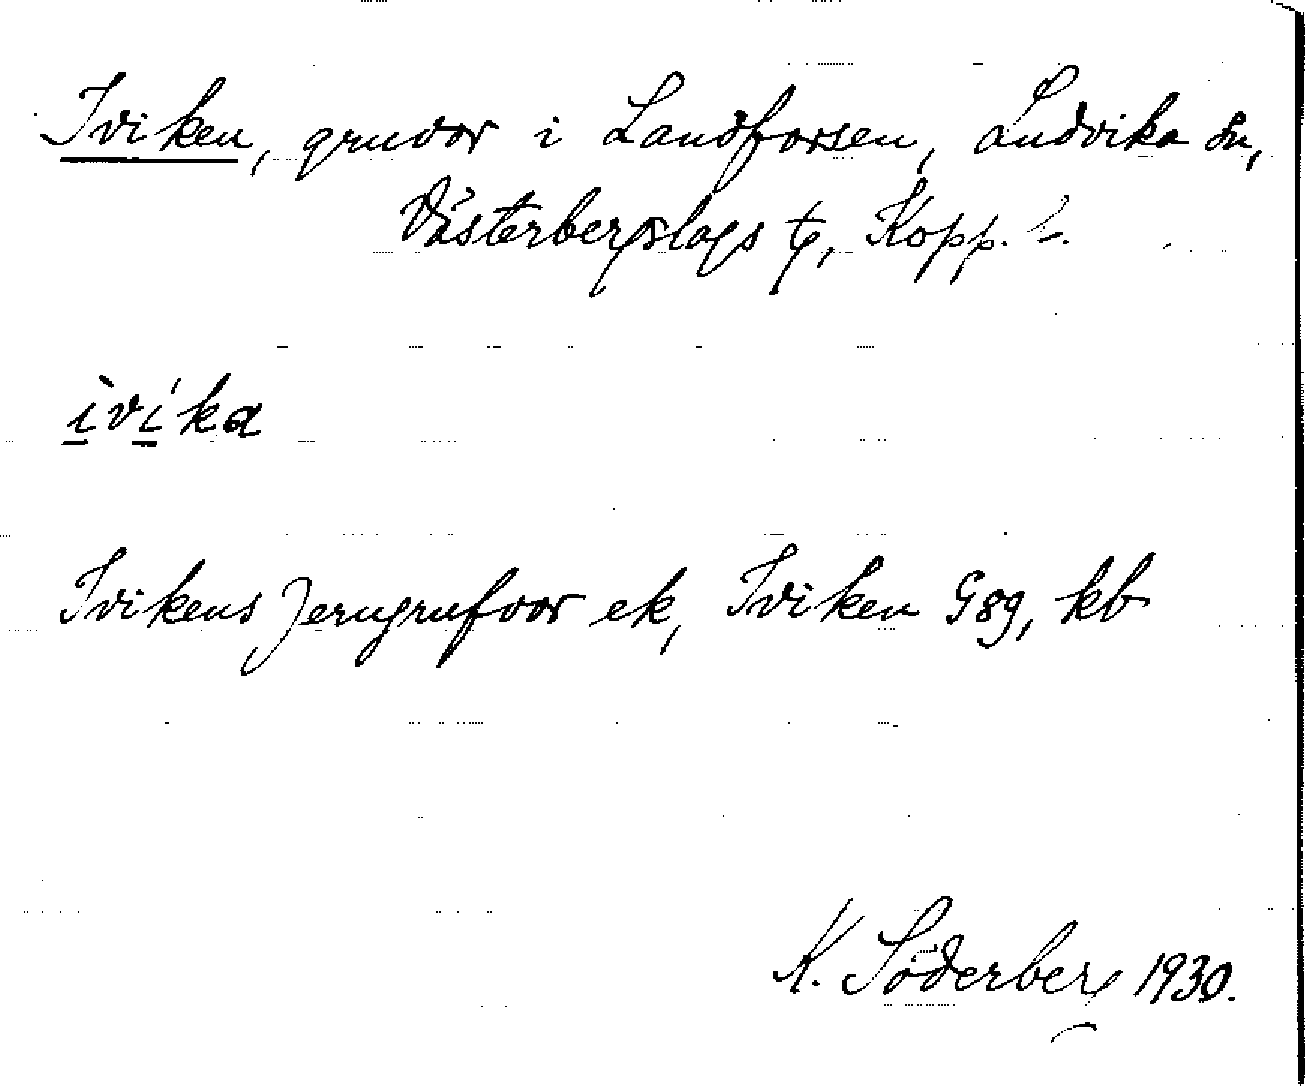 Iviken, gruvor i Landforsen, Ludvika sn,
Västerbergslags tg, Kopp. l.
ìvíka
Ivikens Jerngrufvor ek, Iviken G89, kb
K. Söderberg 1930.